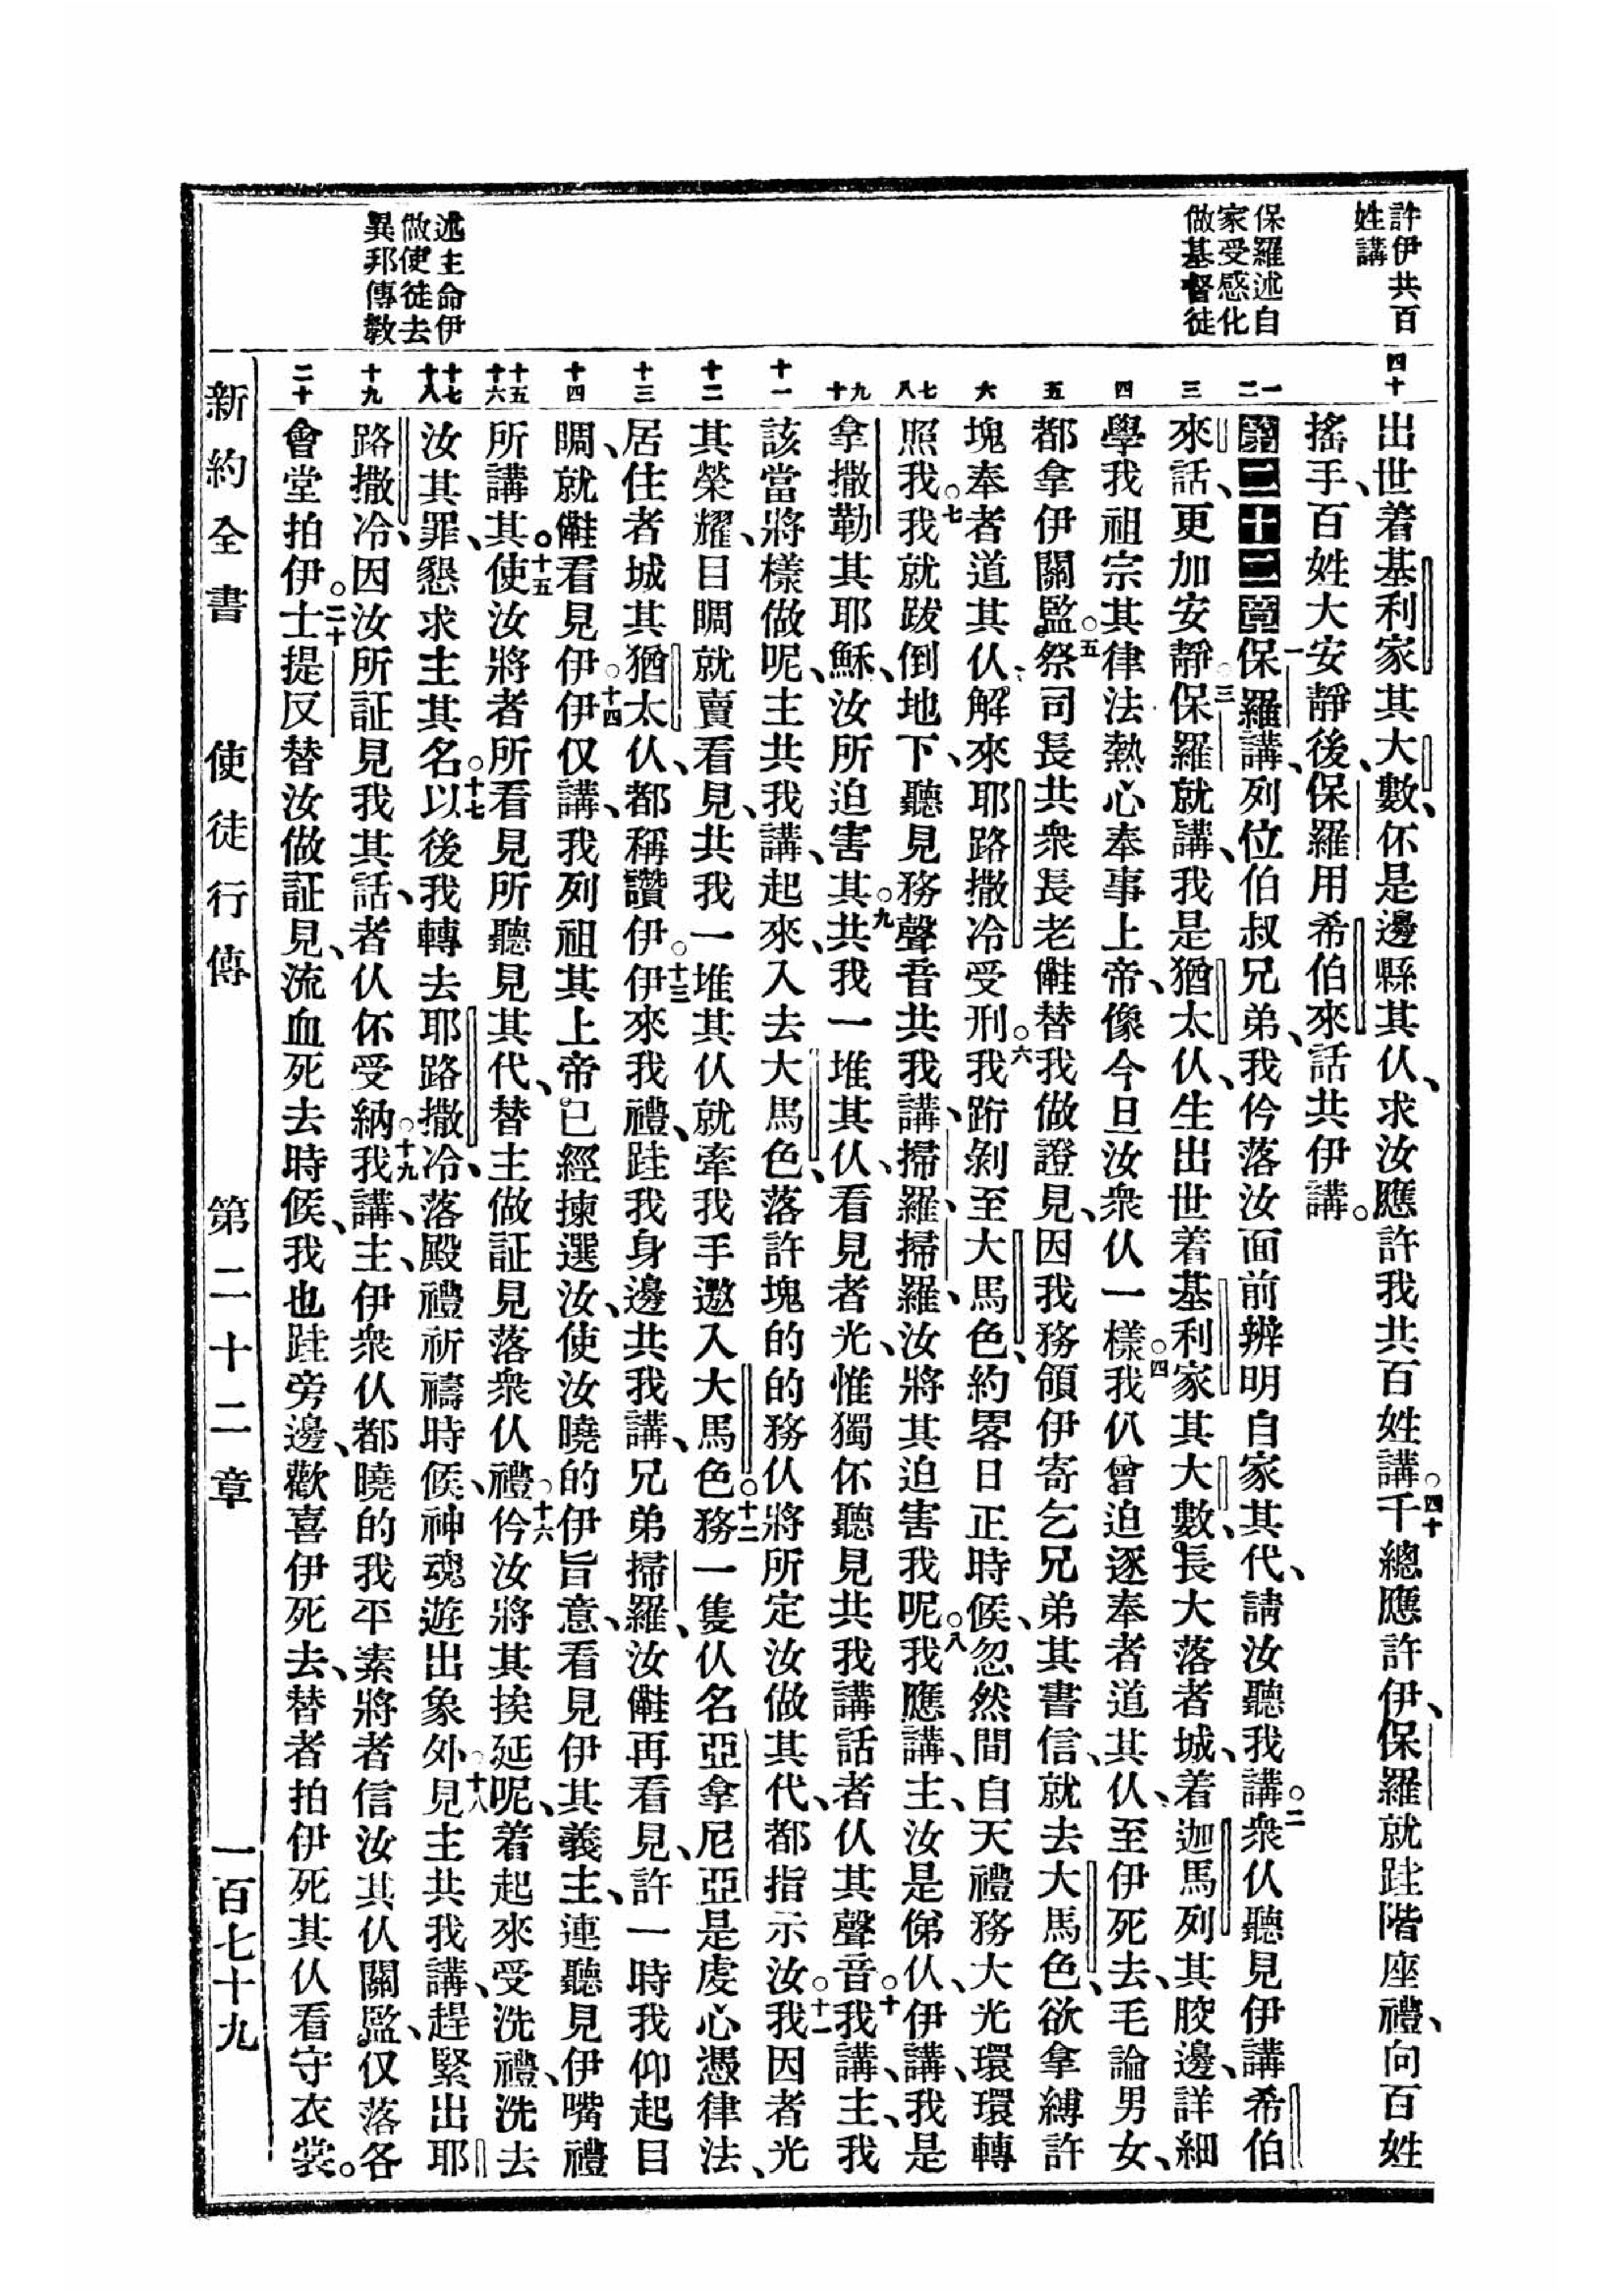 許伊共百
姓講
保羅述自
家受感化
做基督徒
述主命伊
做使徒去
異邦傳教
四十
一
二
三
四
五
六
七
八
九
十
十一
十二
十三
十四
十五
十六
十七
十八
十九
二十
出世、着基利家其大數、伓是邊縣其仈、求汝應許我共百姓講。四十千總應許伊、保羅就跬階座禮、向百姓
搖手、百姓大安靜後、保羅用希伯來話共伊講。
第二十二章一保羅講、列位伯叔兄弟、我仱落汝面前辨明自家其代、請汝聽我講。二衆仈聽見伊講希伯
來話、更加安靜。三保羅就講、我是猶太仈、生出世着基利家其大數、長大落者城、着迦馬列其骹邊、詳細
學我祖宗其律法、熱心奉事上帝、像今旦汝衆仈一樣。四我仈曾迫逐奉者道其仈、至伊死去、毛論男女、
都拿伊關監。五祭司長共衆長老㒃替我做證見、因我務領伊寄乞兄弟其書信、就去大馬色、欲拿縛許
塊奉者道其仈、解來耶路撒冷受刑。六我跻剝至大馬色、約畧日正時候、忽然間自天禮務大光環環轉
照我。七我就跋倒地下、聽見務聲音共我講、掃羅、掃羅、汝將其迫害我呢。八我應講、主、汝是俤仈、伊講、我是
拿撒勒其耶穌、汝所迫害其。九共我一堆其仈、看見者光、惟獨伓聽見共我講話者仈其聲音。十我講、主、我
該當將樣做呢、主共我講、起來、入去大馬色、落許塊的的務仈將所定汝做其代、都指示汝。十一我因者光
其榮耀、目睭就賣看見、共我一堆其仈就牽我手邀入大馬色。十二務一隻仈名亞拿尼亞、是虔心憑律法、
居住者城其猶太仈、都稱讚伊。十三伊來我禮、跬我身邊共我講、兄弟掃羅、汝㒃再看見、許一時我仰起目
睭、就㒃看見伊。十四伊仅講、我列祖其上帝、已經揀選汝、使汝曉的伊旨意、看見伊其義主、連聽見伊嘴禮
所講其。十五使汝將者所看見所聽見其代、替主做証見落衆仈禮。十六仱汝將其挨延呢、着起來受洗禮、洗去
汝其罪、懇求主其名。十七以後我轉去耶路撒冷、落殿禮祈禱時候、神魂遊出象外。十八見主共我講、趕緊出耶
路撒冷、因汝所証見我其話、者仈伓受納。十九我講、主、伊衆仈都曉的我平素將者信汝其仈關監、仅落各
會堂拍伊。二十士提反替汝做証見、流血死去時候、我也跬旁邊、歡喜伊死去、替者拍伊死其仈看守衣裳。
新約全書 使徒行傳 第二十二章 一百七十九